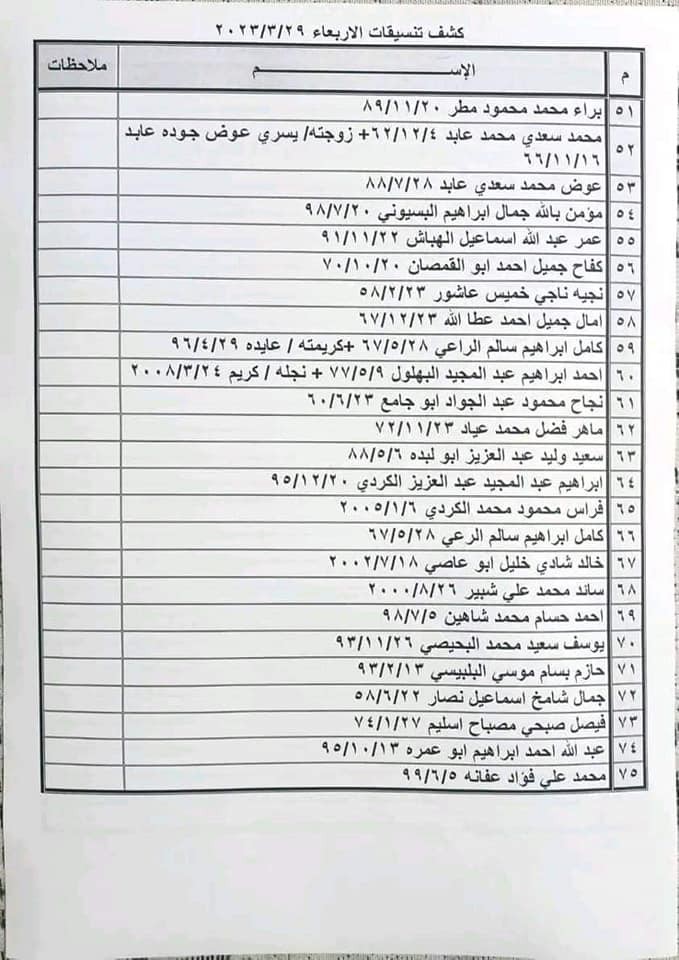 كشف تنسيقات الاربعاء ٢٠٢٣/٣/٢٩
م الإســـــــــم ملاحظات
٥١ براء محمد محمود مطر ٨٩/١١/٢٠
٥٢ محمد سعدي محمد عابد ٦٢/١٢/٤+ زوجته/ يسري عوض جوده عابد
٦٦/١١/١٦
٥٣ عوض محمد سعدي عابد ٨٨/٧/٢٨
٥٤ مؤمن بالله جمال ابراهيم البسيوني ٩٨/٧/٢٠
٥٥ عمر عبد الله اسماعيل الهباش ٩١/١١/٢٢
٥٦ كفاح جميل احمد ابو القمصان ٧٠/١٠/٢٠
٥٧ نجيه ناجي خميس عاشور ٥٨/٢/٢٣
٥٨ امال جميل احمد عطا الله ٦٧/١٢/٢٣
٥٩ كامل ابراهيم سالم الراعي ٦٧/٥/٢٨ +كريمته / عايده ٩٦/٤/٢٩
٦٠ احمد ابراهيم عبد المجيد البهلول ٧٧/٥/٩ + نجله / كريم ٢٠٠٨/٣/٢٤
٦١ نجاح محمود عبد الجواد ابو جامع ٦٠/٦/٢٣
٦٢ ماهر فضل محمد عياد ٧٢/١١/٢٣
٦٣ سعيد وليد عبد العزيز ابو لبده ٨٨/٥/٦
٦٤ ابراهيم عبد المجيد عبد العزيز الكردي ٩٥/١٢/٢٠
٦٥ فراس محمود محمد الكردي ٢٠٠٥/١/٦
٦٦ كامل ابراهيم سالم الرعي ٦٧/٥/٢٨
٦٧ خالد شادي خليل ابو عاصي ٢٠٠٢/٧/١٨
٦٨ ساند محمد علي شبير ٢٠٠٠/٨/٢٦
٦٩ احمد حسام محمد شاهين ٩٨/٧/٥
٧٠ يوسف سعيد محمد البحيصي ٩٣/١١/٢٦
٧١ حازم بسام موسي البلبيسي ٩٣/٢/١٣
٧٢ جمال شامخ اسماعيل نصار ٥٨/٦/٢٢
٧٣ فيصل صبحي مصباح اسليم ٧٤/١/٢٧
٧٤ عبد الله احمد ابراهيم ابو عمره ٩٥/١٠/١٣
٧٥ محمد علي فؤاد عفانه ٩٩/٦/٥